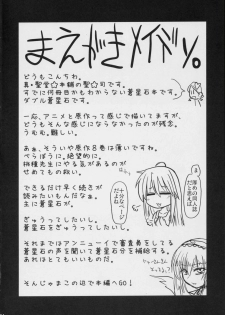 まえがきメイドリ。
どうもこんちわ。
真・聖堂☆本輔の聖☆司です。
すでに何冊目かもわからない蒼星石本です。
ダブル蒼星石。
一応、アニメと原作って感じで描いてますが、
どうもそんな感じにならなかったのが残念。
うむむ、難しい。
あぁ、そういや原作8巻は薄いですね。
べらぼうに。絶望的に。
柳種先生にやる気があるのが
せめてもの救い。
できるだけ早く続きが
読みたいもんだなぁ。
主に蒼星石が。
ぎゅうってしたいし。
蒼星石をぎゅうってしたいし。
それまではアンニューイで審査員をしてる
蒼星石の声を聞いて蒼星石分を給します。
あれはとてもいいものだ。
そんじゃまこの辺で本編へGO!